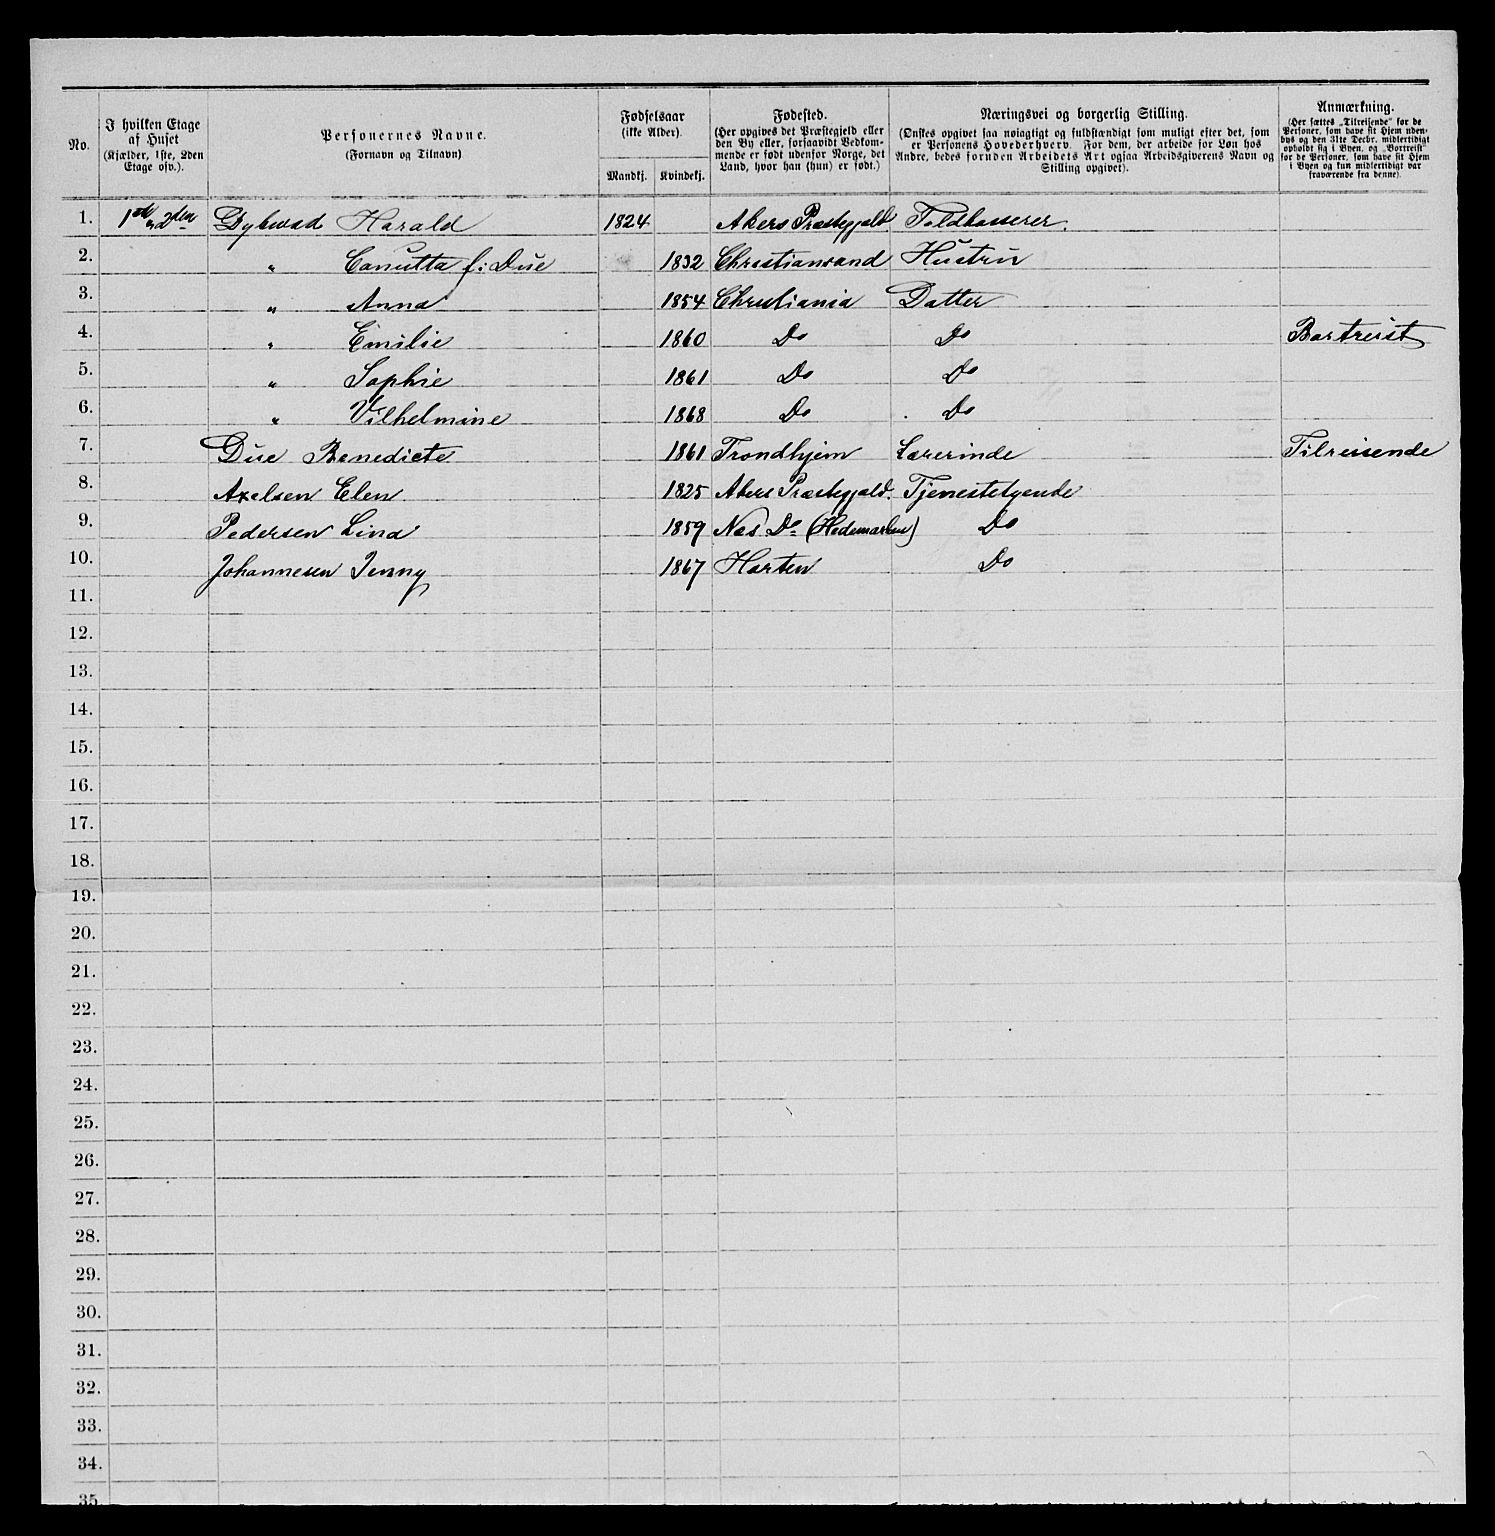 No. | I hvilken Etage af Huset (Kjælder, 1ste, 2den Etage osv.). | Personernes Navne. (Fornavn og Tilnavn) | Fødselsaar (ikke Alder). Mandkj. | Kvindekj. | Fødested. (Her opgives det Præstegjeld eller den By eller, forsaavidt Vedkommende er født udenfor Norge, det Land, hvor han (hun) er født.) | Næringsvei og borgerlig Stilling. (Ønskes opgivet saa nøiagtigt og fuldstændigt som muligt efter det, som er Personens Hovederhverv. For dem, der arbeide for Løn hos Andre, bedes foruden Arbeidets Art ogsaa Arbeidsgiverens Navn og Stilling opgivet). | Anmærkning. (Her sættes „Tilreisende“ for de Personer, som have sit Hjem udenbys og den 31te Decbr. midlertidigt opholdt sig i Byen, og „Bortreist“ for de Personer, som have sit Hjem i Byen og kun midlertidigt var fraværende fra denne).
1. 1ste & 2den Dybwad Harald 1824 Akers Præstegjæld Toldkasserer.
2. " Canutta f: Due 1832 Christiansand Hustru
3. " Anna 1854 Christiania Datter
4. " Emilie 1860 Do Do Bortreist
5. " Sophie 1861 Do Do
6. " Vilhelmine 1868 Do Do
7. Due Benedicte 1861 Trondhjem Lærerinde Tilreisende
8. Axelsen Elen 1825 Akers Præstegjæld. Tjenestetyende
9. Pedersen Lina 1859 Næs Do (Hedemarken) Do
10. Johannesen Jenny 1867 Horten Do
11.
12.
13.
14.
15.
16.
17.
18.
19.
20.
21.
22.
23.
24.
25.
26.
27.
28.
29.
30.
31.
32.
33.
34.
35.